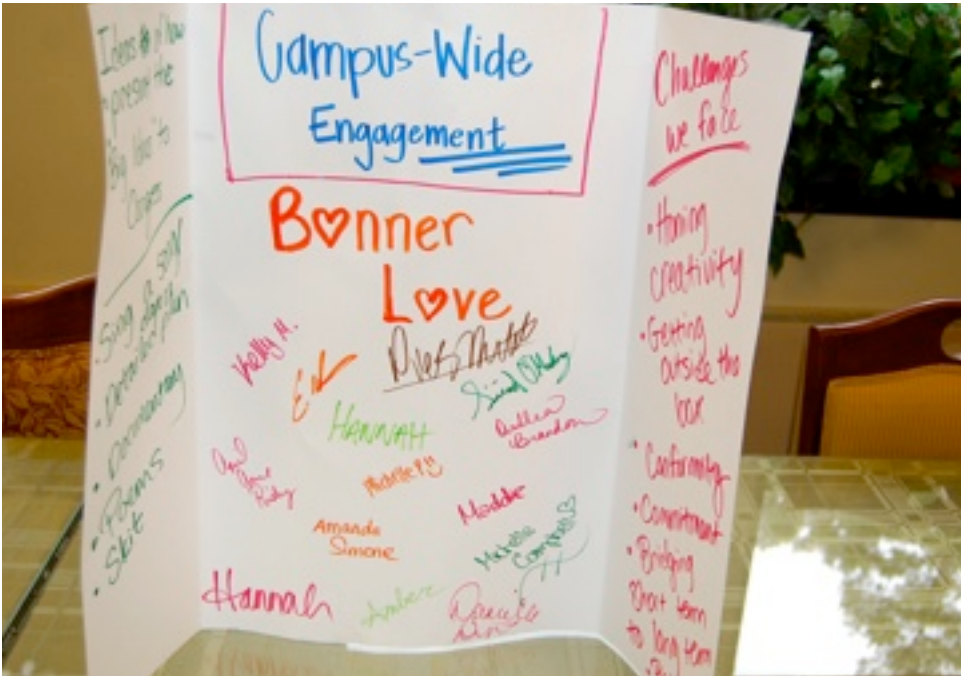 Ideas of how
present the
Big Idea to
Sing a song
Detailed plan
• Documentary
• Poems
• Skit
Campus-Wide
Engagement
Bonner
Love
Kelly M.
HANNAH
Brandon
Michelle P.
Maddie
Amanda
Simone
Michelle
Campbell
Hannah
Amber
Challenges
we face
• Honing
creativity
• Getting
outside the
box
• Conformity
• Commitment
• Bridging
Short term
to long term